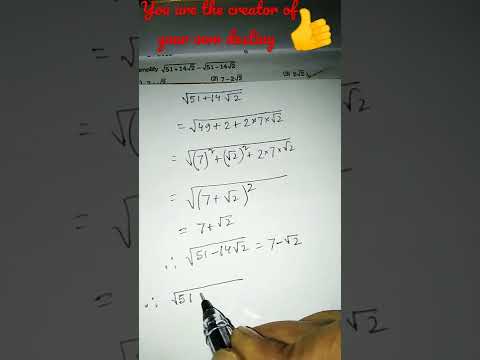 You are the creator of
your own destiny
√51+14√2 - √51-14√2
(2) 7-2√2
√51+14√2
= √49+2+2×7×√2
= √(7)²+(√2)²+2×7×√2
= √(7+√2)²
= 7+√2
∴ √51-14√2 = 7-√2
∴ √51